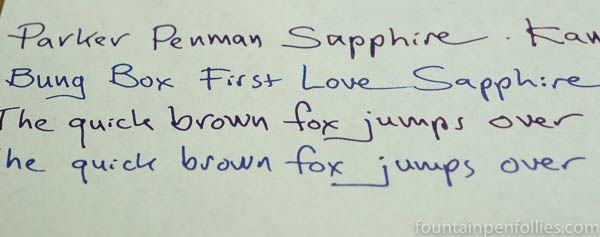 Parker Penman Sapphire. Kaw
Bung Box First Love Sapphire
The quick brown fox jumps over
he quick brown fox jumps over
fountainpenfollies.com